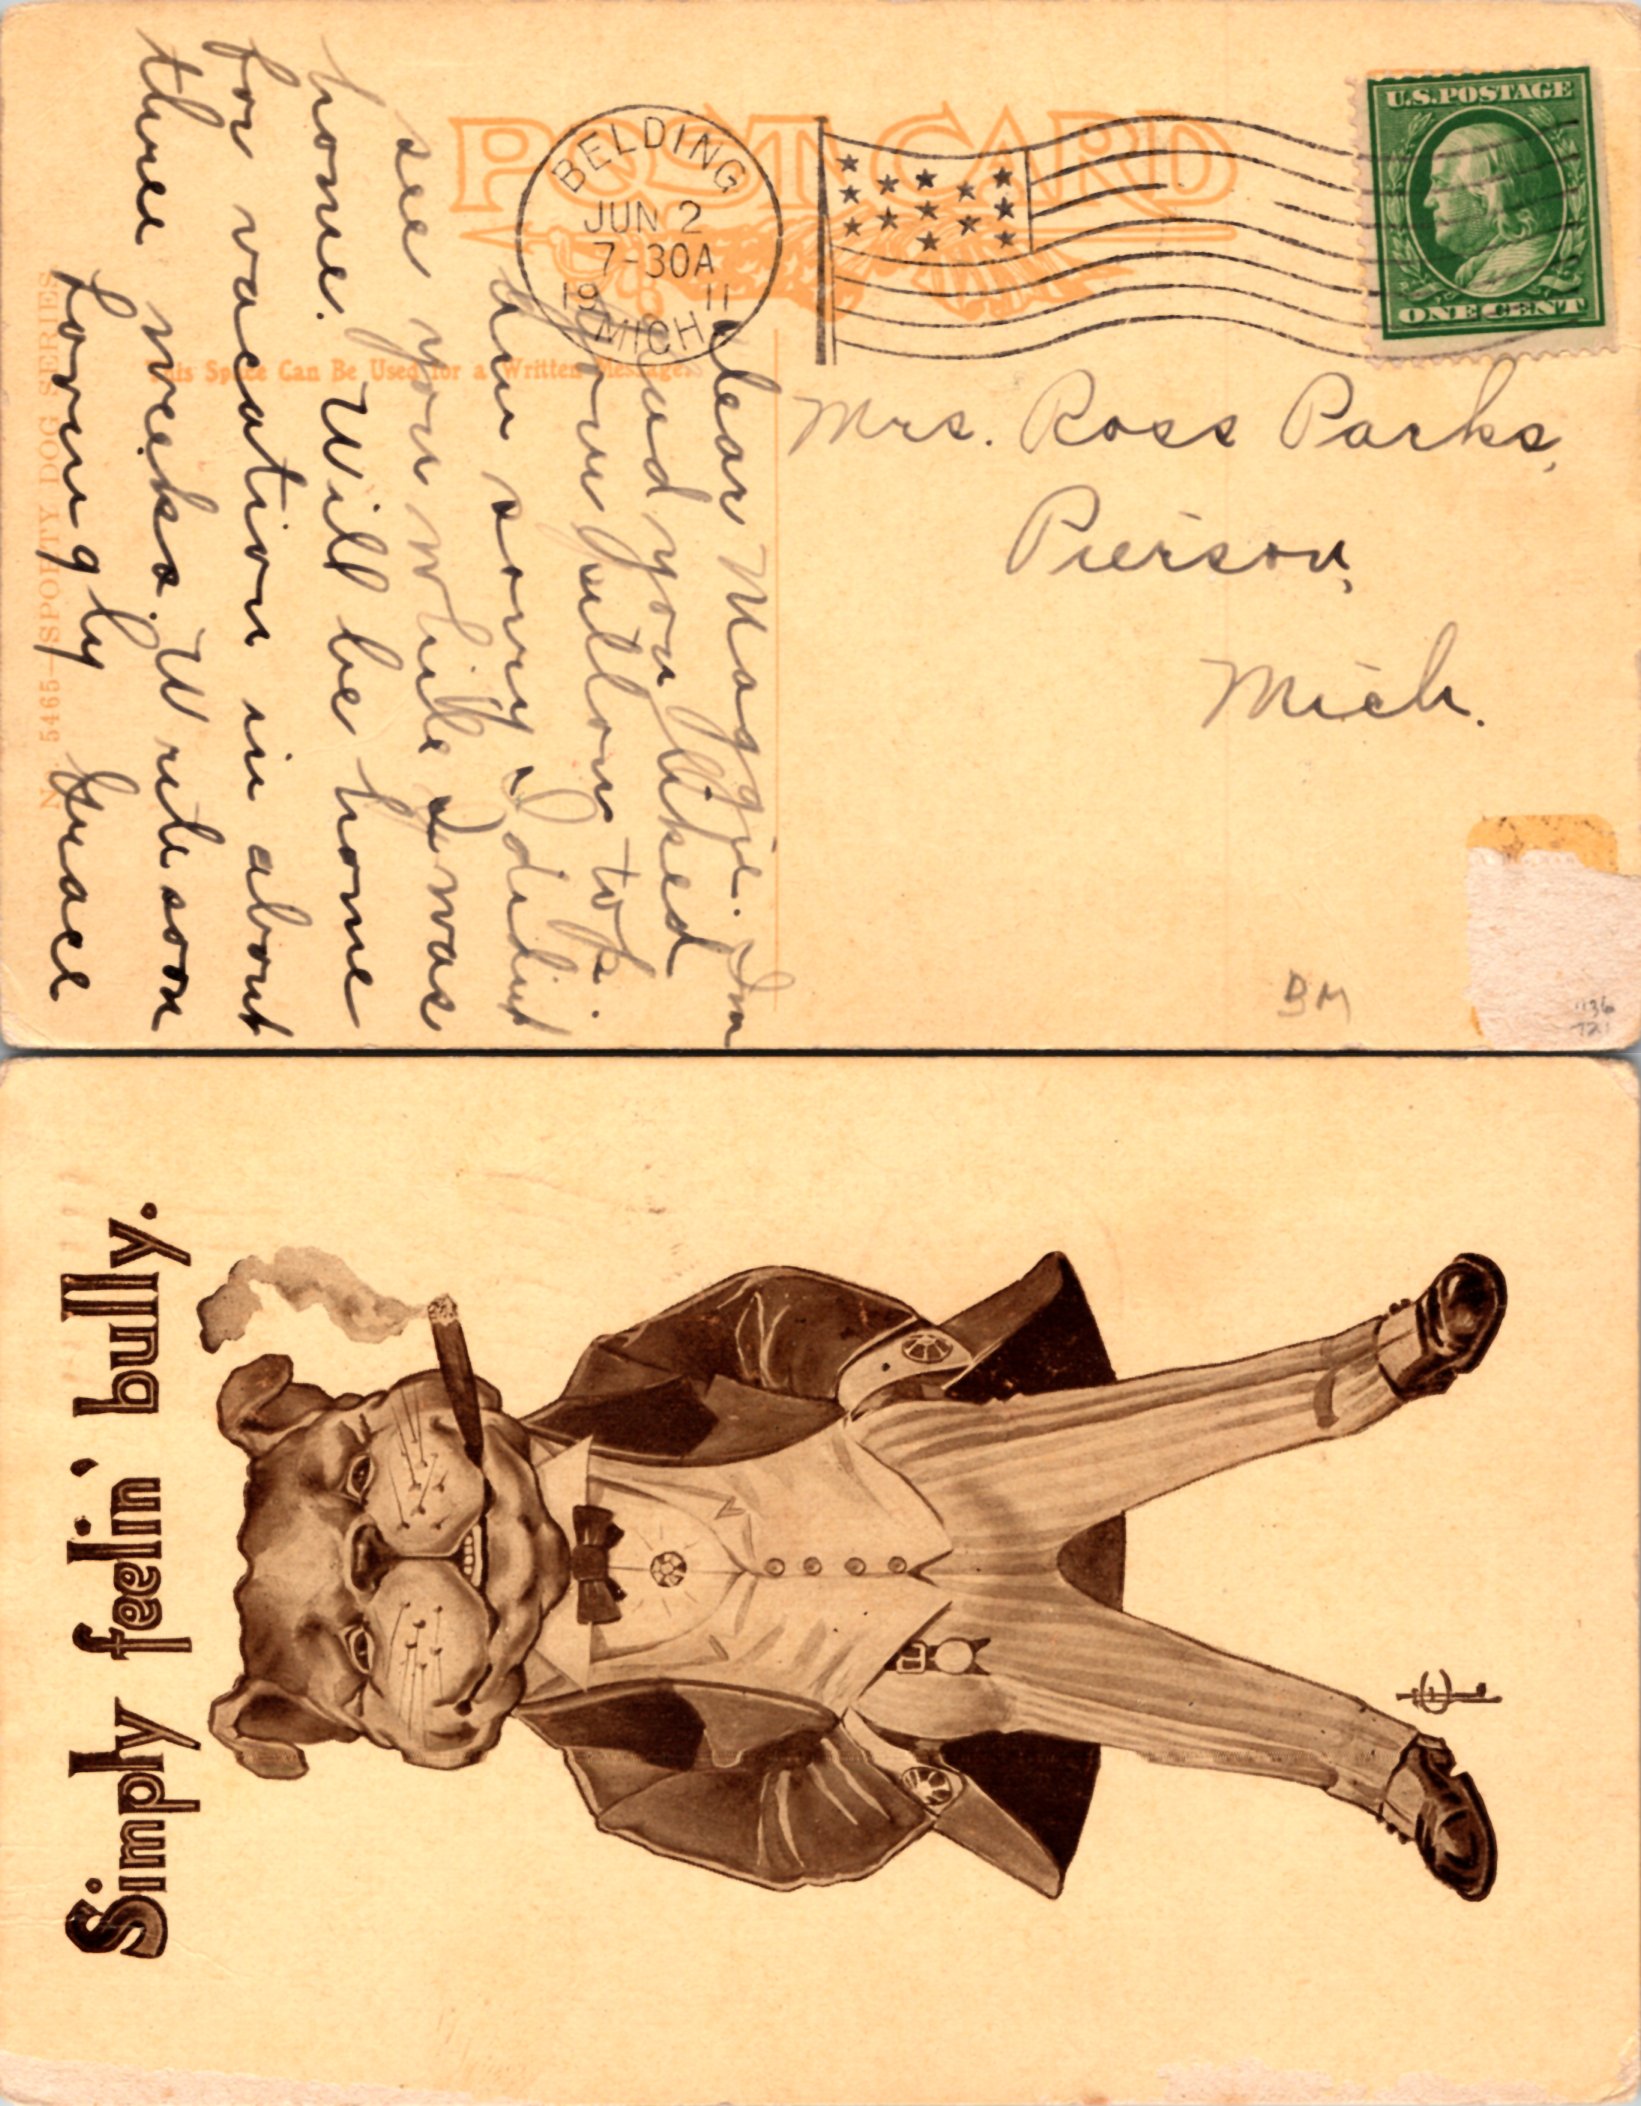 POST CARD
BELDING
JUN 2
7-30A
19 11
MICH
U.S. POSTAGE
ONE CENT
This Space Can Be Used for a Written Message.
No. 5465—SPORTY DOG SERIES
Mrs. Ross Parks,
Pierson,
Mich.
Dear Maggie. Im
glad you liked
your pillow tops.
Am sorry I didnt
see you while I was
home. Will be home
for vacation in about
three weeks. Write soon
Lovingly Grace
BM
Simply feelin' bully.